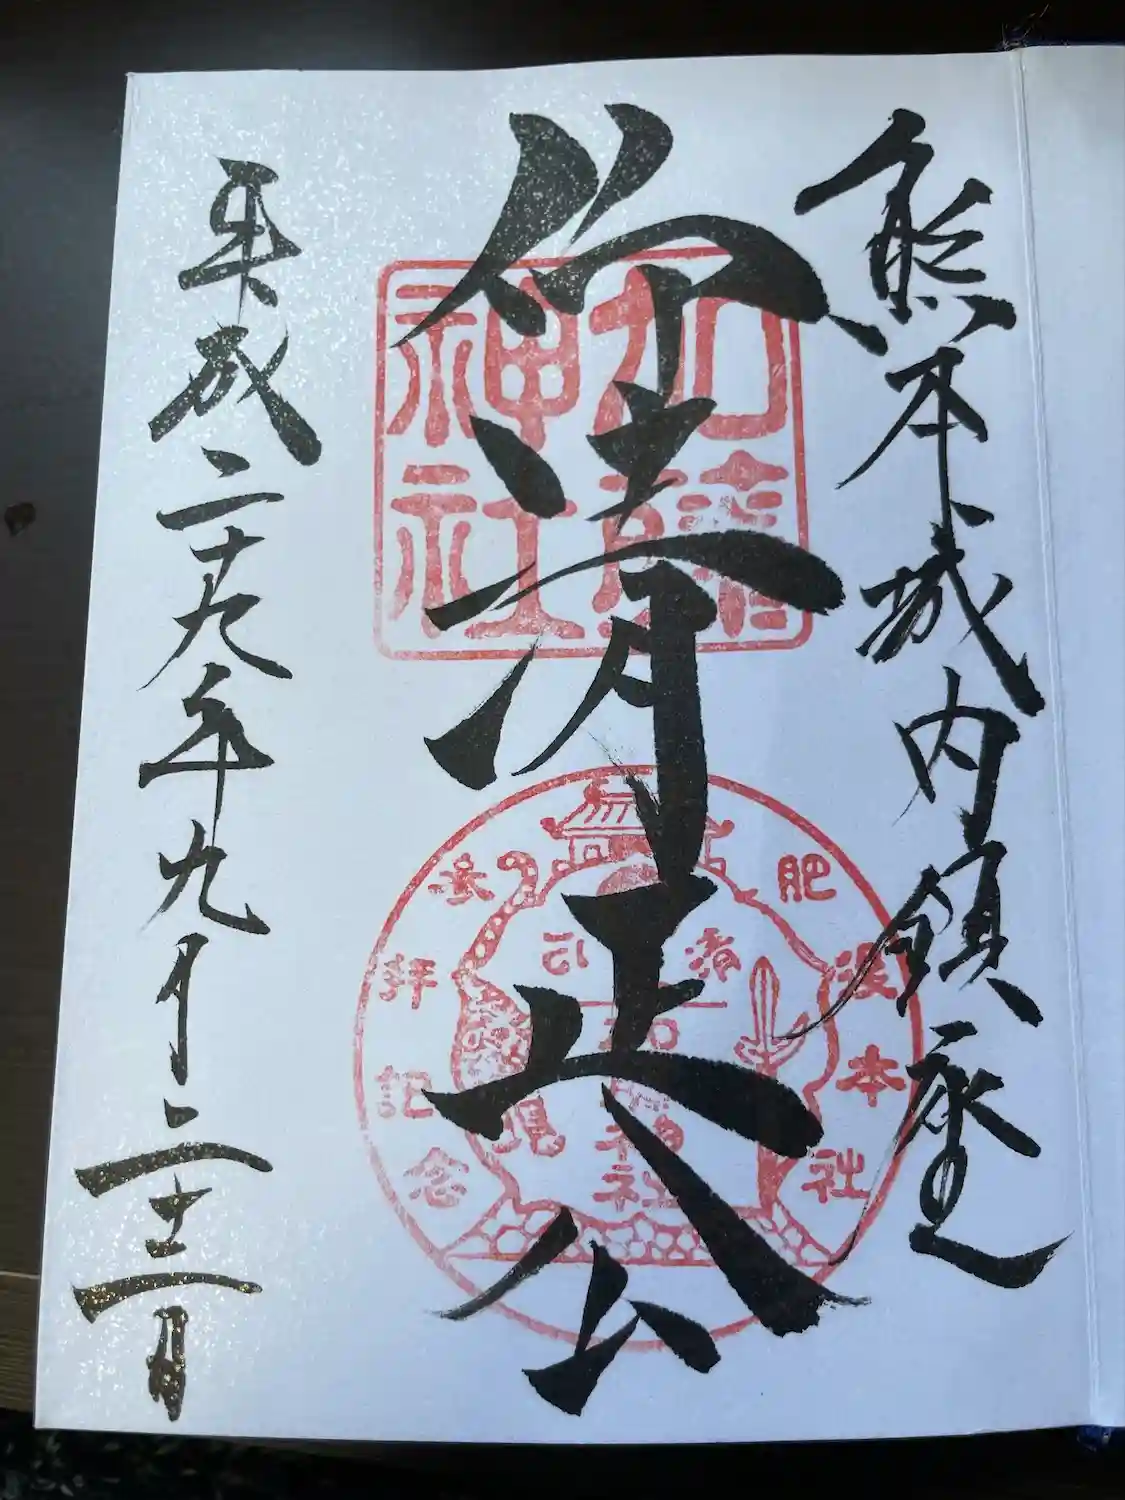 熊本城内鎮座
仰清正公
平成二十九年九月二十二日
加藤
神社
肥後本社
参拝記念
加藤神社